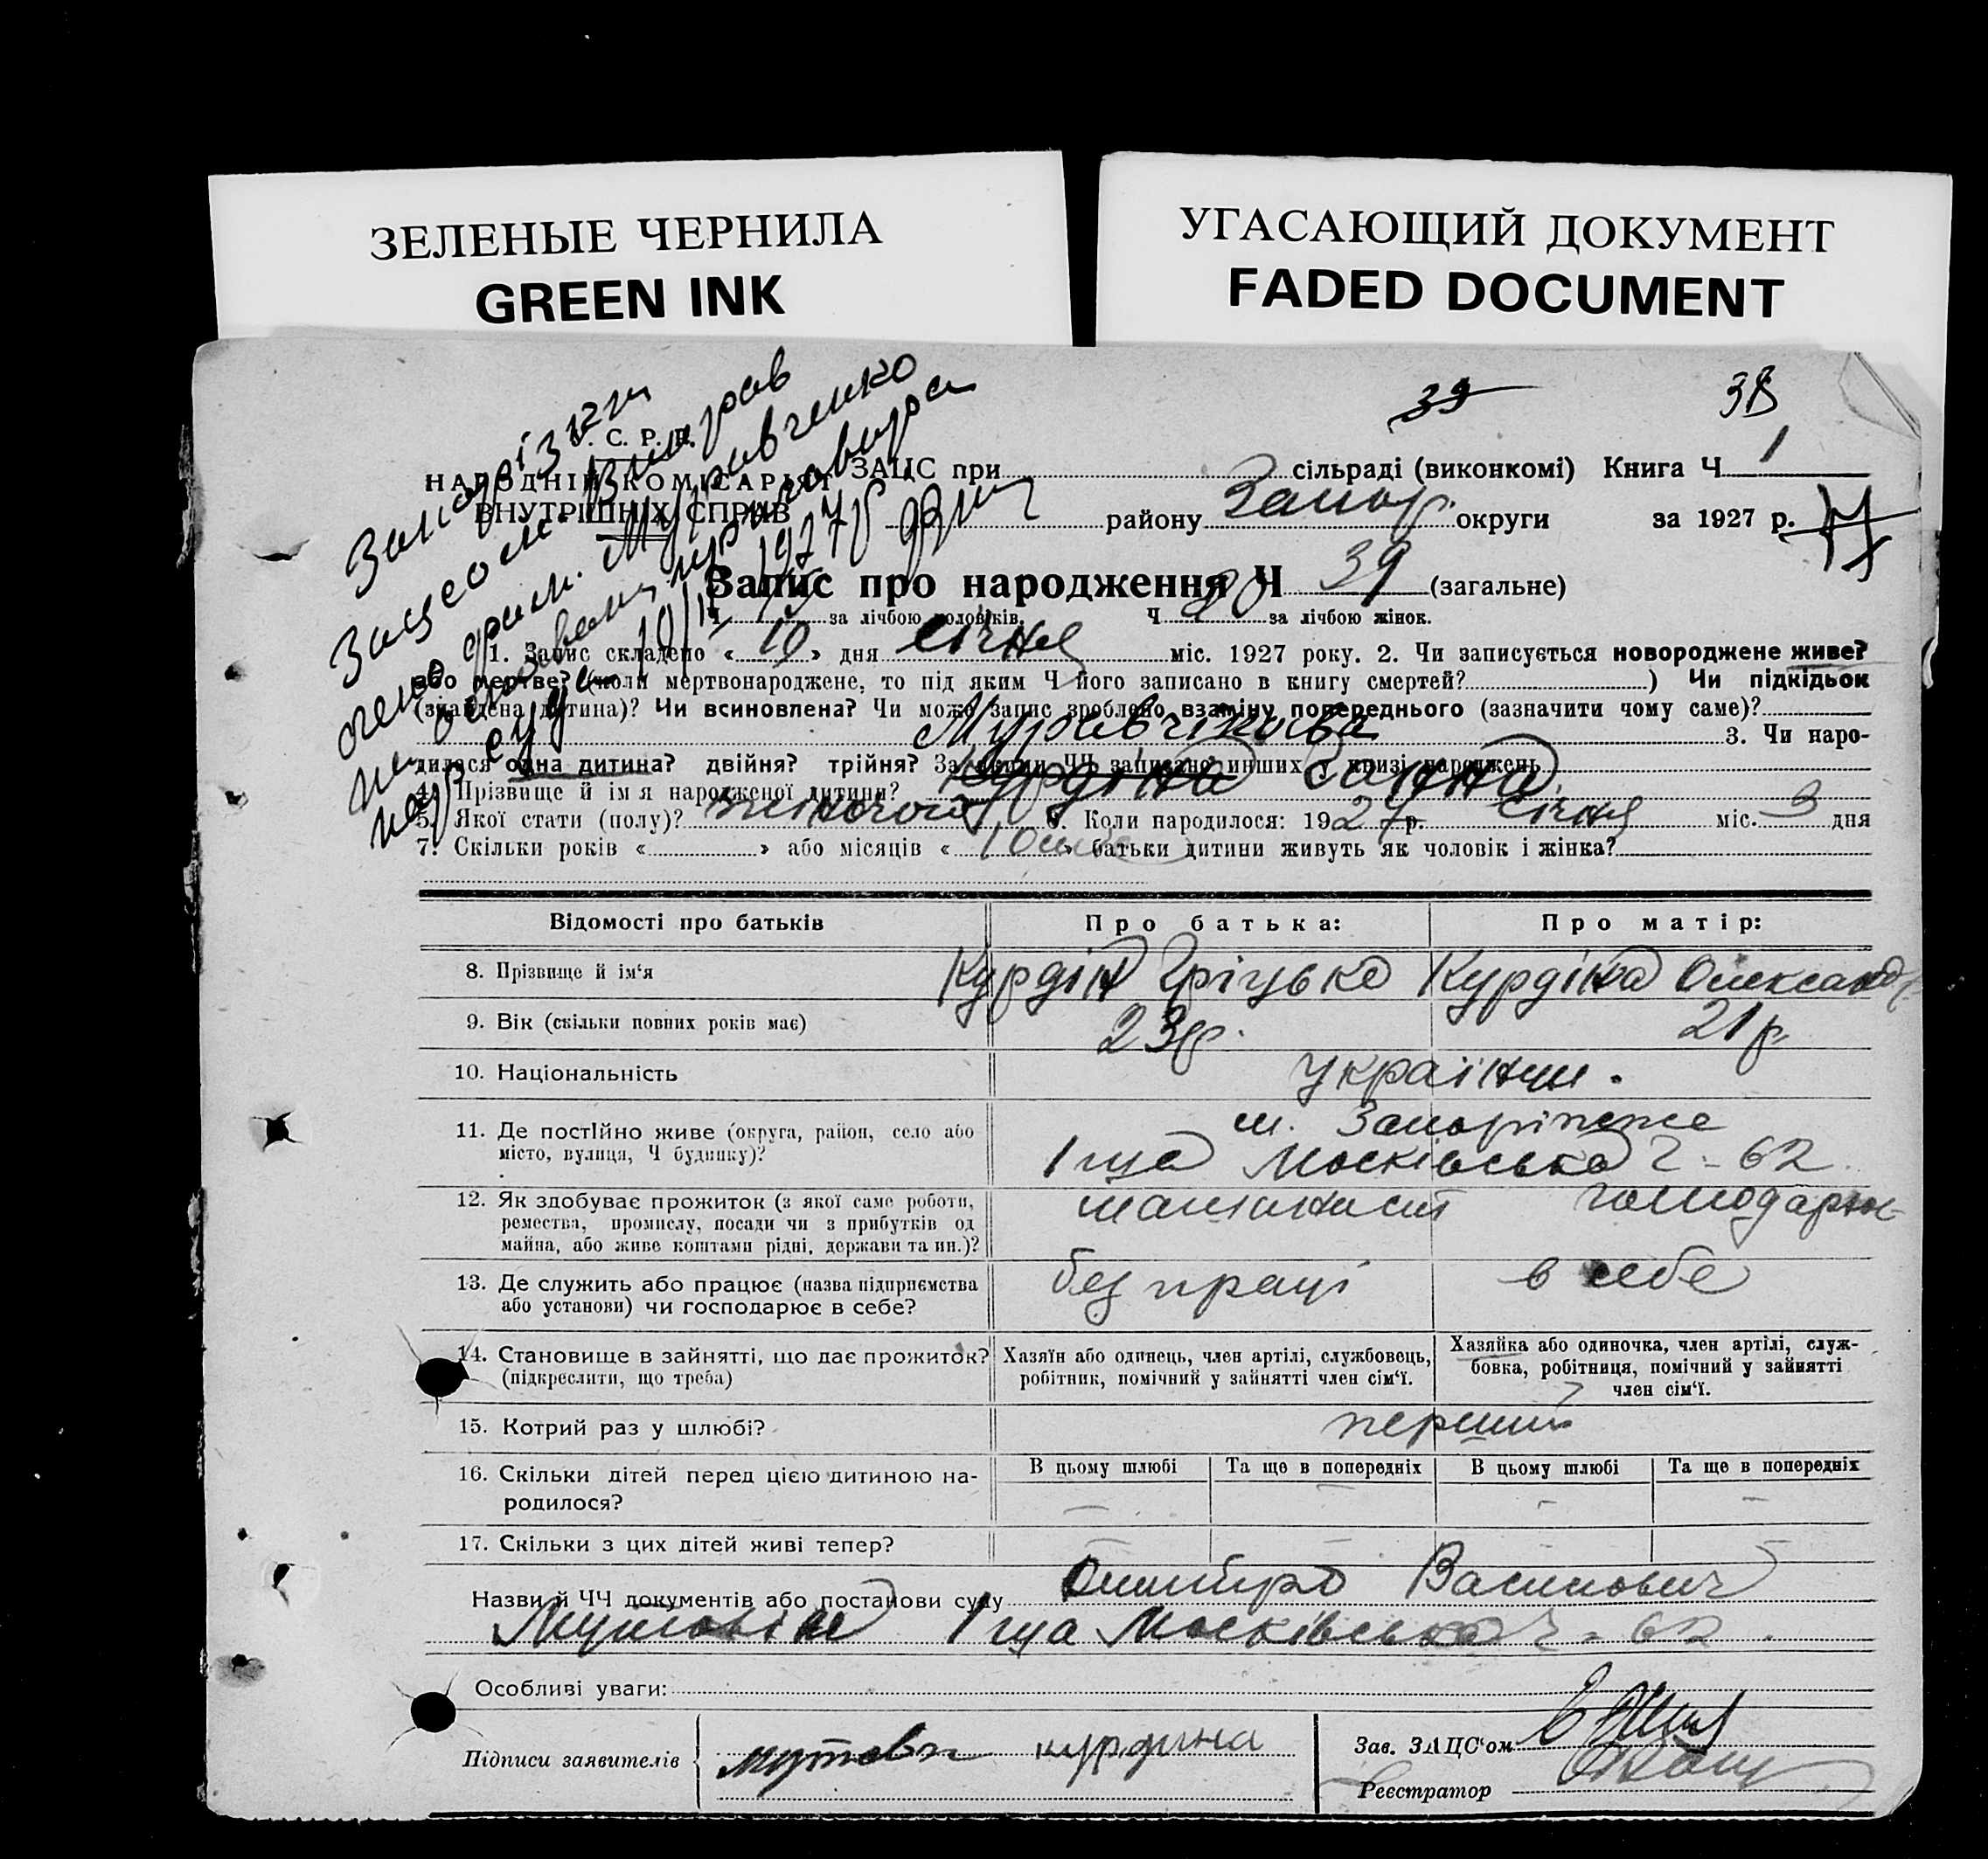 ЗЕЛЕНЫЕ ЧЕРНИЛА
GREEN INK
УГАСАЮЩИЙ ДОКУМЕНТ
FADED DOCUMENT
39 38
С. Р. Р.
НАРОДНІЙ КОМІСАРІЯТ
ВНУТРІШНІХ СПРАВ
ЗАЦС при сільраді (виконкомі) Книга Ч 1
району Запор. округи за 1927 р.
Запис про народження Ч 39 (загальне)
Ч за лічбою чоловіків. Ч 20 за лічбою жінок.
1. Запис складено «10» дня січня міс. 1927 року. 2. Чи записується новороджене живе?
або мертве? (коли мертвонароджене, то під яким Ч його записано в книгу смертей? ) Чи підкідьок
(знайдена дитина)? Чи всиновлена? Чи може запис зроблено взаміну попереднього (зазначити чому саме)?
3. Чи наро-
дилася одна дитина? двійня? трійня? За якими ЧЧ записано инших у книзі народжень
4. Прізвище й ім'я народженої дитини?
5. Якої стати (полу)? жіночої 6. Коли народилося: 1927 р. січня міс. 3 дня
7. Скільки років « » або місяців «10 » батьки дитини живуть як чоловік і жінка?
Відомості про батьків Про батька: Про матір:
8. Прізвище й ім'я Курдін Гріцько Курдіна Олександ
9. Вік (скільки повних років має) 23 р. 21 р.
10. Національність українци.
11. Де постІйно живе (округа, район, село або
місто, вулиця, Ч будинку)?
м. Запоріжже
1 ша Московська Ч - 62
12. Як здобуває прожиток (з якої саме роботи,
ремества, промислу, посади чи з прибутків од
майна, або живе коштами рідні, держави та ин.)?
машиніст господарює
13. Де служить або працює (назва підприємства
або установи) чи господарює в себе?
без праці в себе
14. Становище в зайнятті, що дає прожиток?
(підкреслити, що треба)
Хазяїн або одинець, член артілі, службовець,
робітник, помічний у зайнятті член сім'ї.
Хазяйка або одиночка, член артілі, служ-
бовка, робітниця, помічний у зайнятті
член сім'ї.
15. Котрий раз у шлюбі? перший
16. Скільки дітей перед цією дитиною на-
родилося?
В цьому шлюбі Та ще в попередніх В цьому шлюбі Та ще в попередніх
17. Скільки з цих дітей живі тепер?
Назви й ЧЧ документів або постанови суду Василович
1 ша Московська Ч - 62.
Особливі уваги:
Підписи заявителів курдина
Зав. ЗАЦС'ом
Реєстратор